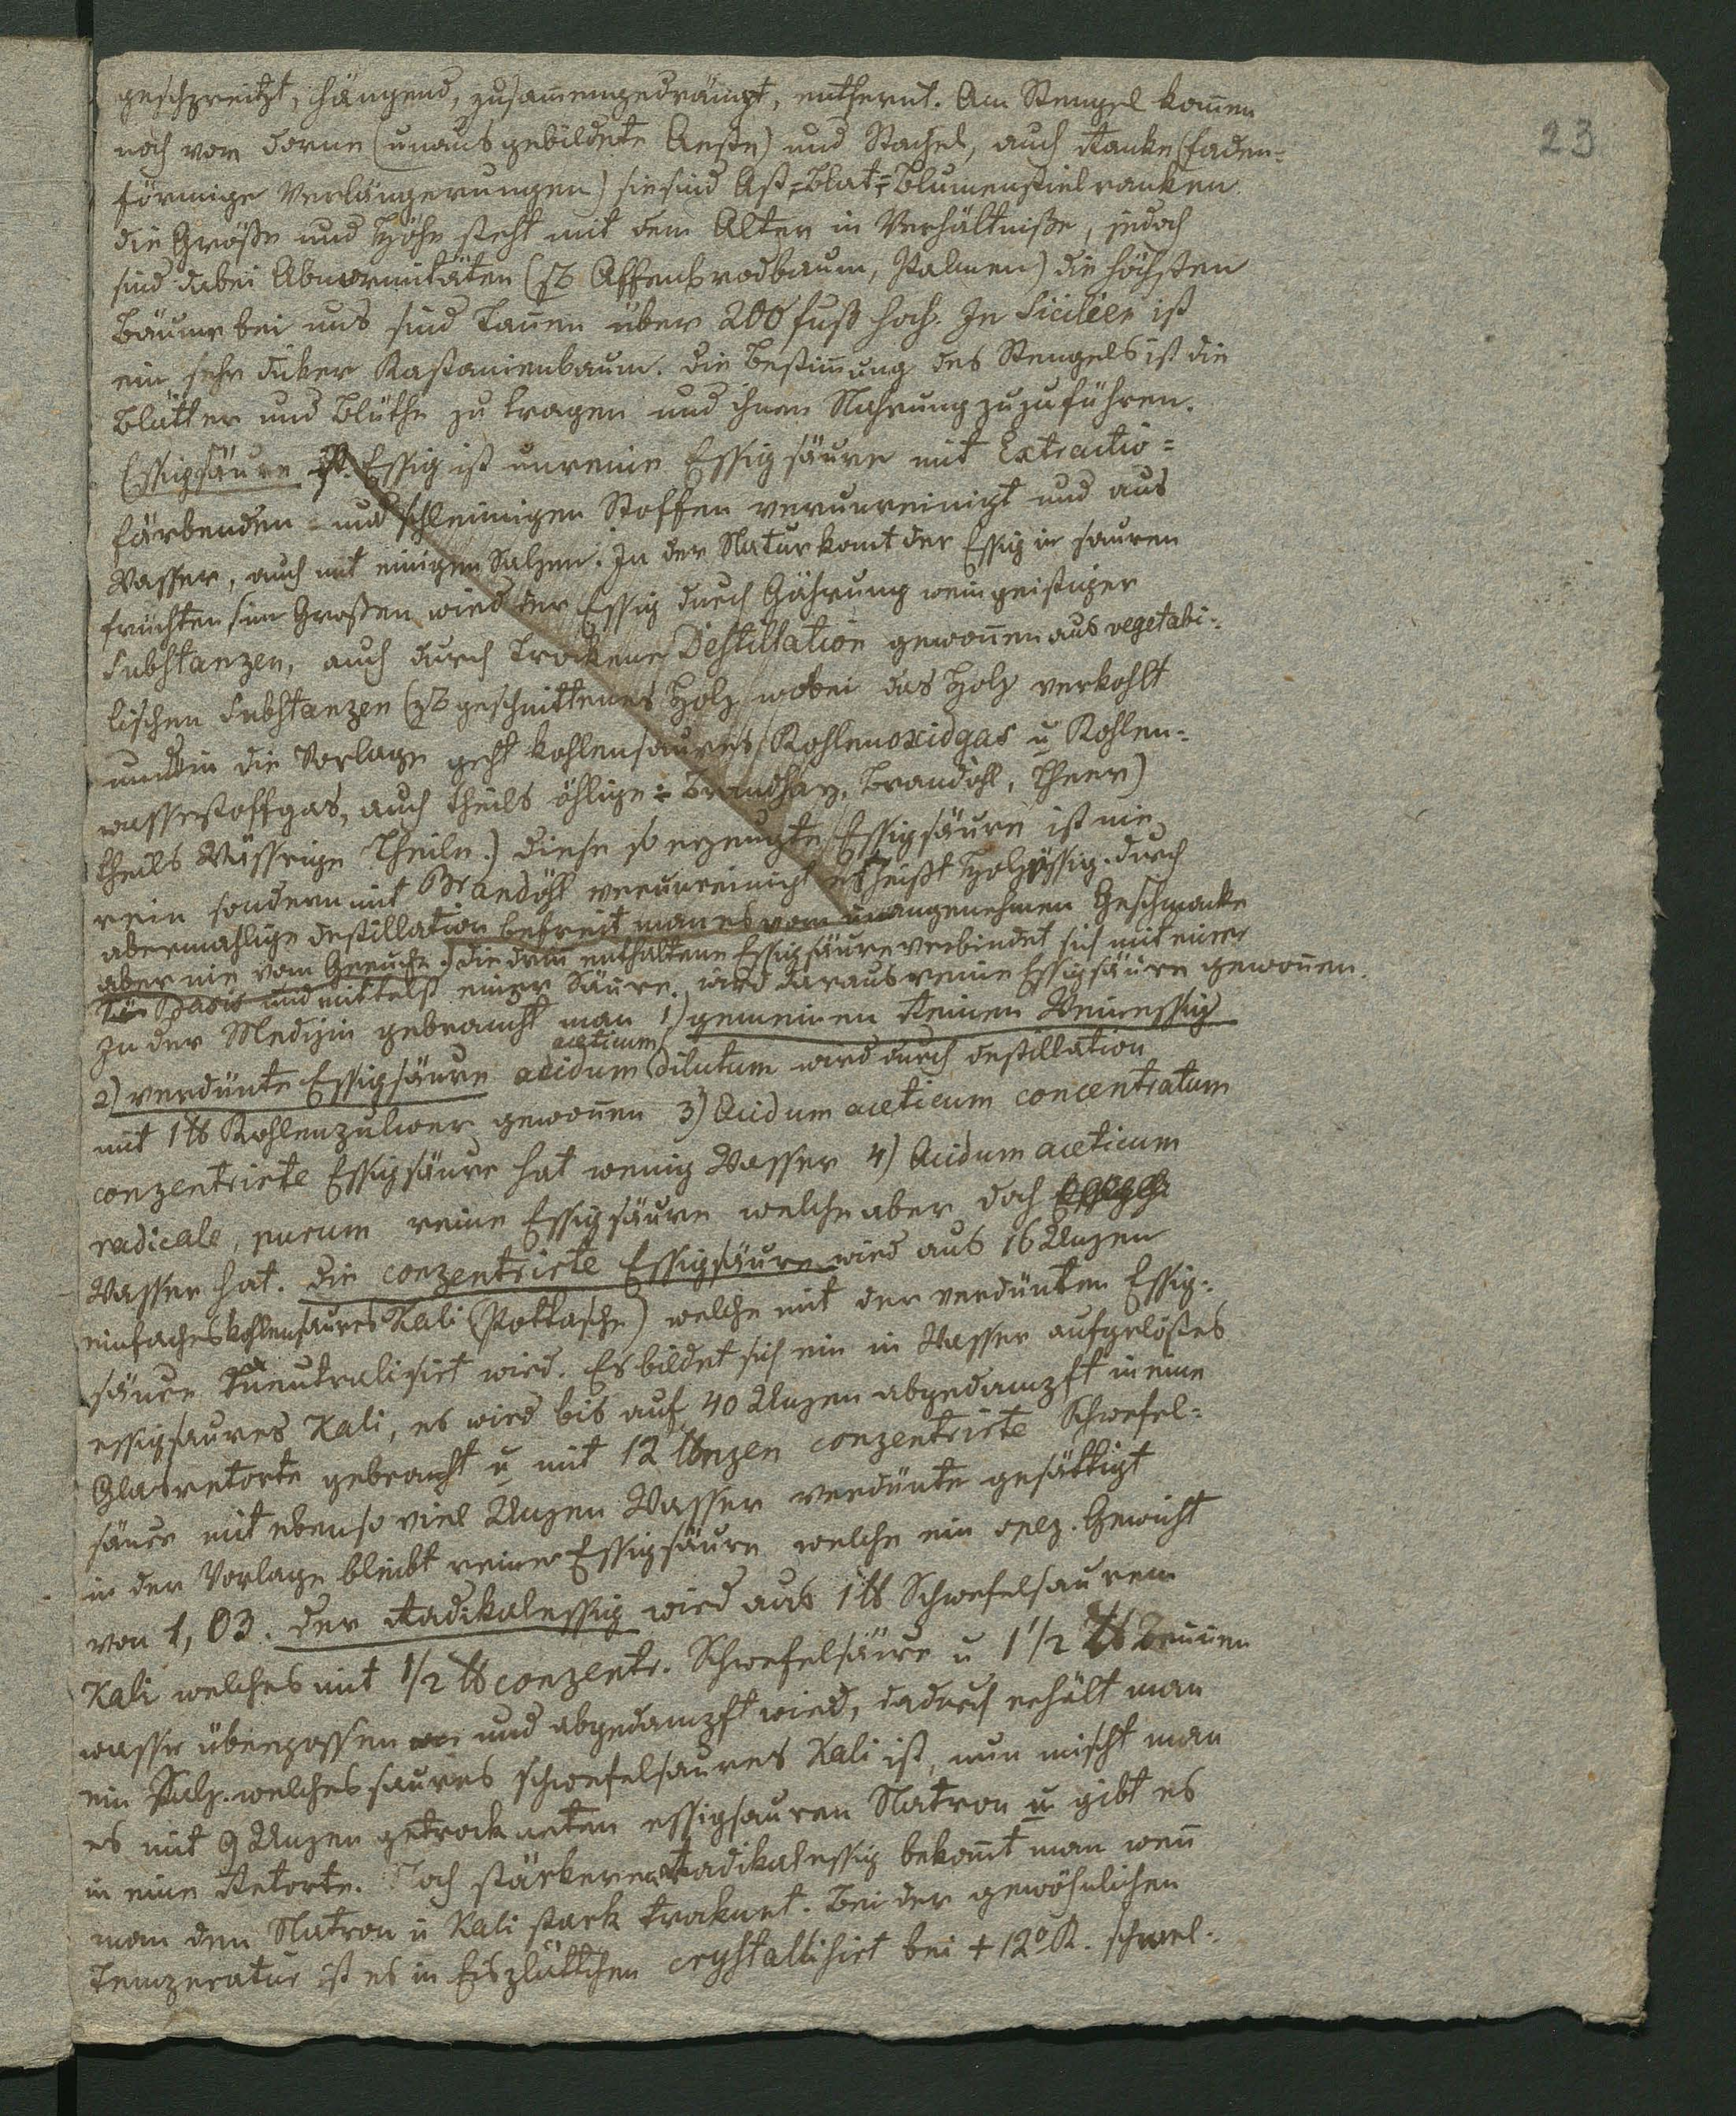 23
gespreitzt, hängend, zusam̄engedrängt, entfernt. Am Stengel kom̄en
noch vor Dorne (unausgebildete Aeste) und Stachel, auch Ranke (faden=
förmige Verlängerungen) sie sind Ast=Blat=Blumenstielranken.
die Größe und Höhe steht mit dem Alter in Verhältniße, jedoch
sind dabei Abnormitäten (zB Affenbrodbaum, Palmen) die höchsten
Bäume bei uns sind Tan̄en über 200 fuß hoch. In Sicilien ist
ein sehr diker Kastanienbaum. Die Bestim̄ung des Stengels ist die
Blätter und Blüthe zu tragen und ihnen Nahrung zuzuführen.
Essigsäure. Essig ist unreine Essigsäure mit Extractiv=
färbenden = und schleimigen Stoffen verunreinigt und aus
Wasser, auch mit einigen Salzen. In der Natur kom̄t der Essig in sauren
früchten, im Großen wird der Essig durch Gährung weingeistiger
Substanzen, auch durch Trockene Destillation gewon̄en aus vegetabi=
lischen Substanzen (zB geschnittenes Holz wobei das Holz verkohlt
und in die Vorlage geht kohlensaures, Kohlenoxidgas u Kohlen=
wasserstoffgas, auch theils öhlige = Brandharz, Brandöhl, Theer)
theils Wässrige Theile.) Diese so erzeugte Essigsäure ist nie
rein sondern mit Brandöhl verunreinigt es heißt Holzessig. durch
abermahlige Destillation befreit man es vom unangenehmen Geschmacke
aber nie vom Geruche.) die darin enthaltene Essigsäure verbindet sich mit einer
Basis und mittelst einer Säure wird daraus reine Essigsäure gewon̄en.
In der Medizin gebraucht man 1) gemeinen Reinen Weinessig
2) verdün̄te Essigsäure acidum aceticum dilutum wird durch Destillation
mit 1 ℔ Kohlenpulver gewon̄en 3) Acidum aceticum concentratum
conzentrirte Essigsäure hat wenig Wasser 4) Acidum aceticum
radicale, purum reine Essigsäure welche aber doch
Wasser hat. Die conzentrirte Essigsäure wird aus 16 Unzen
einfaches kohlensaures Kali (Pottasche) welche mit der verdün̄ten Essig=
säure neutralisirt wird. Es bildet sich ein in Wasser aufgelößtes
essigsaures Kali, es wird bis auf 40 Unzen abgedampft in eine
Glasretorte gebracht u mit 12 Unzen conzentrirte Schwefel=
säure mit ebenso viel Unzen Wasser verdün̄te gesättigt
in der Vorlage bleibt reine Essigsäure welche ein spez. Gewicht
von 1,03. Der Radikalessig wird aus 1 ℔ Schwefelsaurem
Kali welches mit 1/2 ℔ conzentr. Schwefelsäure u 1 1/2 ℔ Brun̄en
wasser übergossen und abgedampft wird, dadurch erhält man
ein Salz welches saures schwefelsaures Kali ist, nun mischt man
es mit 9 Unzen getrockneten essigsauren Natron u gibt es
in eine Retorte. Noch stärkeren Radikalessig bekom̄t man wen̄
man den Natron u Kali stark troknet. Bei der gewöhnlichen
Temperatur ist es in Eisplättchen crystallisirt bei + 12° R. schmel=